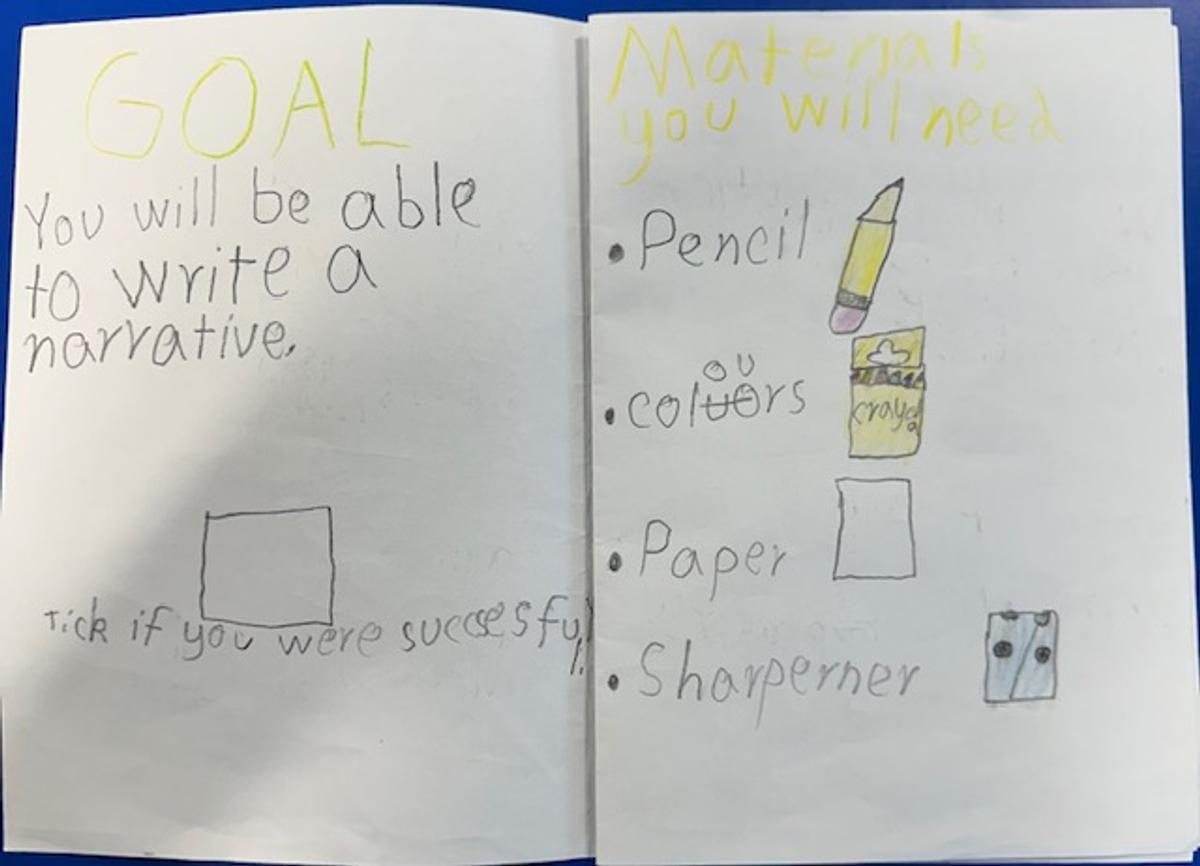 GOAL
You will be able
to write a
narrative.
Tick if you were successful.
Materials
you will need
• Pencil
• colours
crayo
• Paper
• Sharperner